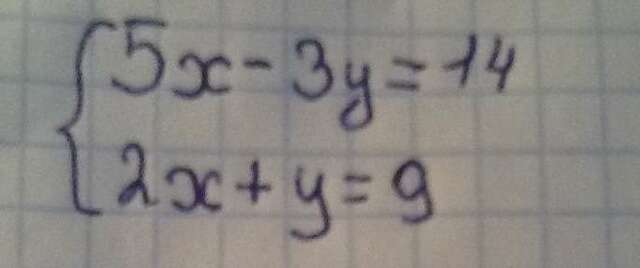 5x - 3y = 14
2x + y = 9